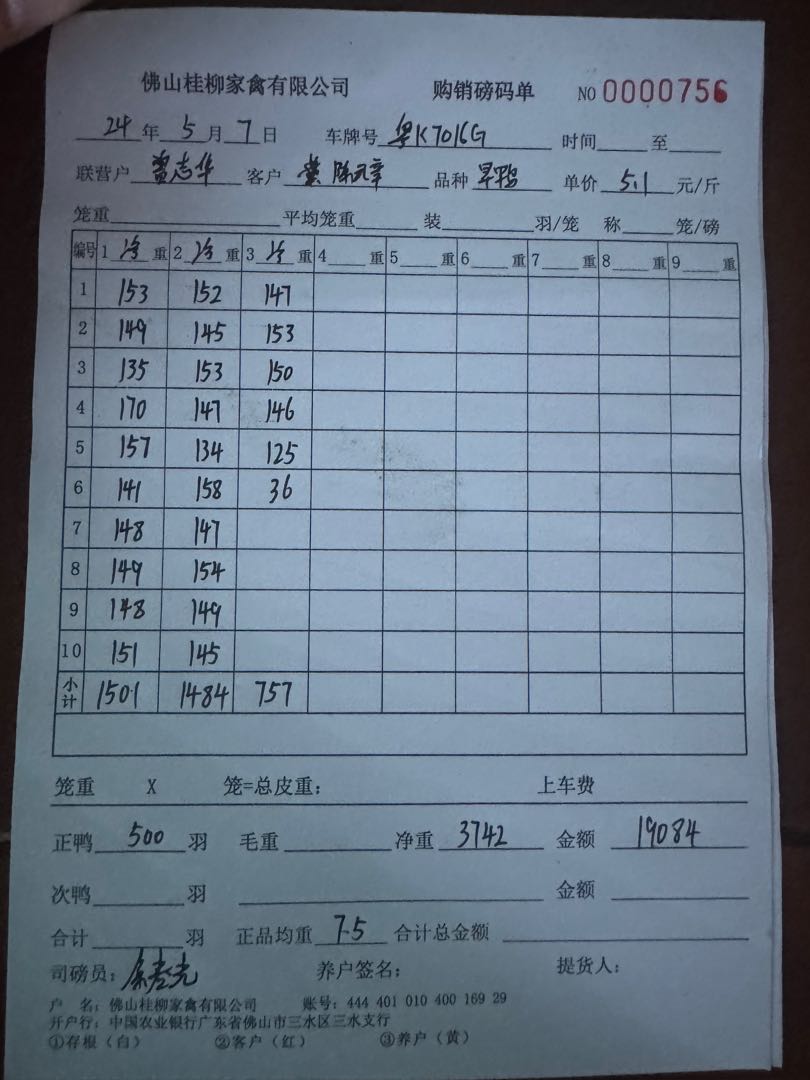 佛山桂柳家禽有限公司 购销磅码单 NO 0000756
24年 5月 7日 车牌号 粤K701KG 时间 至
联营户 志华 客户 陈元章 品种 旱鸭 单价 5.1 元/斤
笼重 平均笼重 装 羽/笼 称 笼/磅
编号 1 重 2 重 3 重 4 重 5 重 6 重 7 重 8 重 9 重
1 153 152 147
2 149 145 153
3 135 153 150
4 170 147 146
5 157 134 125
6 141 158 36
7 148 147
8 149 154
9 148 149
10 151 145
小计 1501 1484 757
笼重 X 笼=总皮重: 上车费
正鸭 500 羽 毛重 净重 3742 金额 19084
次鸭 羽 金额
合计 羽 正品均重 7.5 合计总金额
司磅员: 养户签名: 提货人:
户 名: 佛山桂柳家禽有限公司 账号: 444 401 010 400 169 29
开户行: 中国农业银行广东省佛山市三水区三水支行
①存根(白) ②客户(红) ③养户(黄)